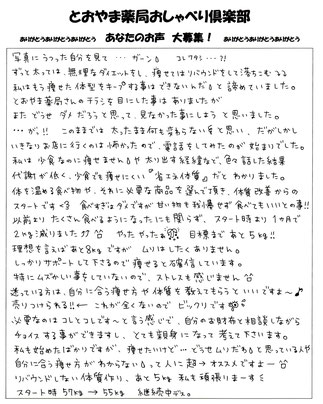 とおやま薬局おしゃべり倶楽部
ありがとうありがとうありがとう あなたのお声 大募集! ありがとうありがとうありがとう
写真にうつった自分を見て… ガーン コレワタシ…?!
ずっと太っては、無理なダイエットをし、痩せてはリバウンドをして落ちこむ
私はもう痩せた体型をキープする事はできないんだと諦めていました。
とおやま薬局さんのチラシを目にした事はありましたが
またどうせダメだろうと思って、見なかった事にしようと思いました。
…が!! このままでは太ったまま何も変わらないと思い、だがしかし
いきなりお店に行くのは怖かったので、電話をしてみたのが始まりでした。
私は少食なのに痩せません 太り出す経緯など、色々話した結果
代謝が低く、少食でも痩せにくい"省エネ体質"だとわかりました。
体を温める食べ物や、それに必要な商品を選んで頂き、体質改善からの
スタートです 食べすぎはダメですが甘い物も我慢せず食べてもいいとの事!!
以前よりたくさん食べるようになったにも関らず、スタート時より1ヶ月で
2kg減りました やったやったぁ 目標まであと5kg!!
理想を言えばあと8kgですが ムリはしたくありません。
しっかりサポートして下さるので痩せると確信しています。
特にムズかしい事をしていないので、ストレスも感じません
迷っている方は、自分に合う痩せ方や体質を教えてもらうといいですよ~
売りつけられる!!← これが全くないのでビックリです
必要なのはコレとコレです~と言う感じで、自分のお財布と相談しながら
チョイスする事ができますし、とても親身になって考えて下さいます。
私も始めたばかりですが、痩せたいけど…どうせムリだもと思っている人や
自分に合う痩せ方がわからない って人に超→オススメですよー
リバウンドしない体質作り、あと5kg私も頑張りまーす
スタート時57kg → 55kg 継続中デス。